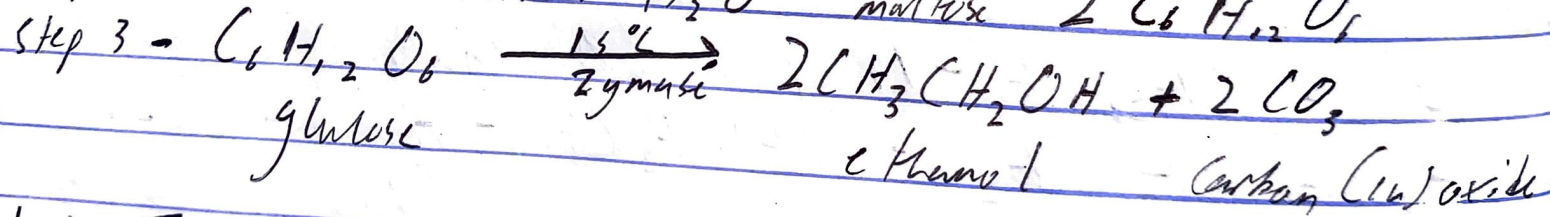 maltose 2 C₆H₁₂O₆
Step 3 - C₆H₁₂O₆ 15°C Zymase 2CH₃CH₂OH + 2CO₃
glulose ethanol Carbon (iv) oxide